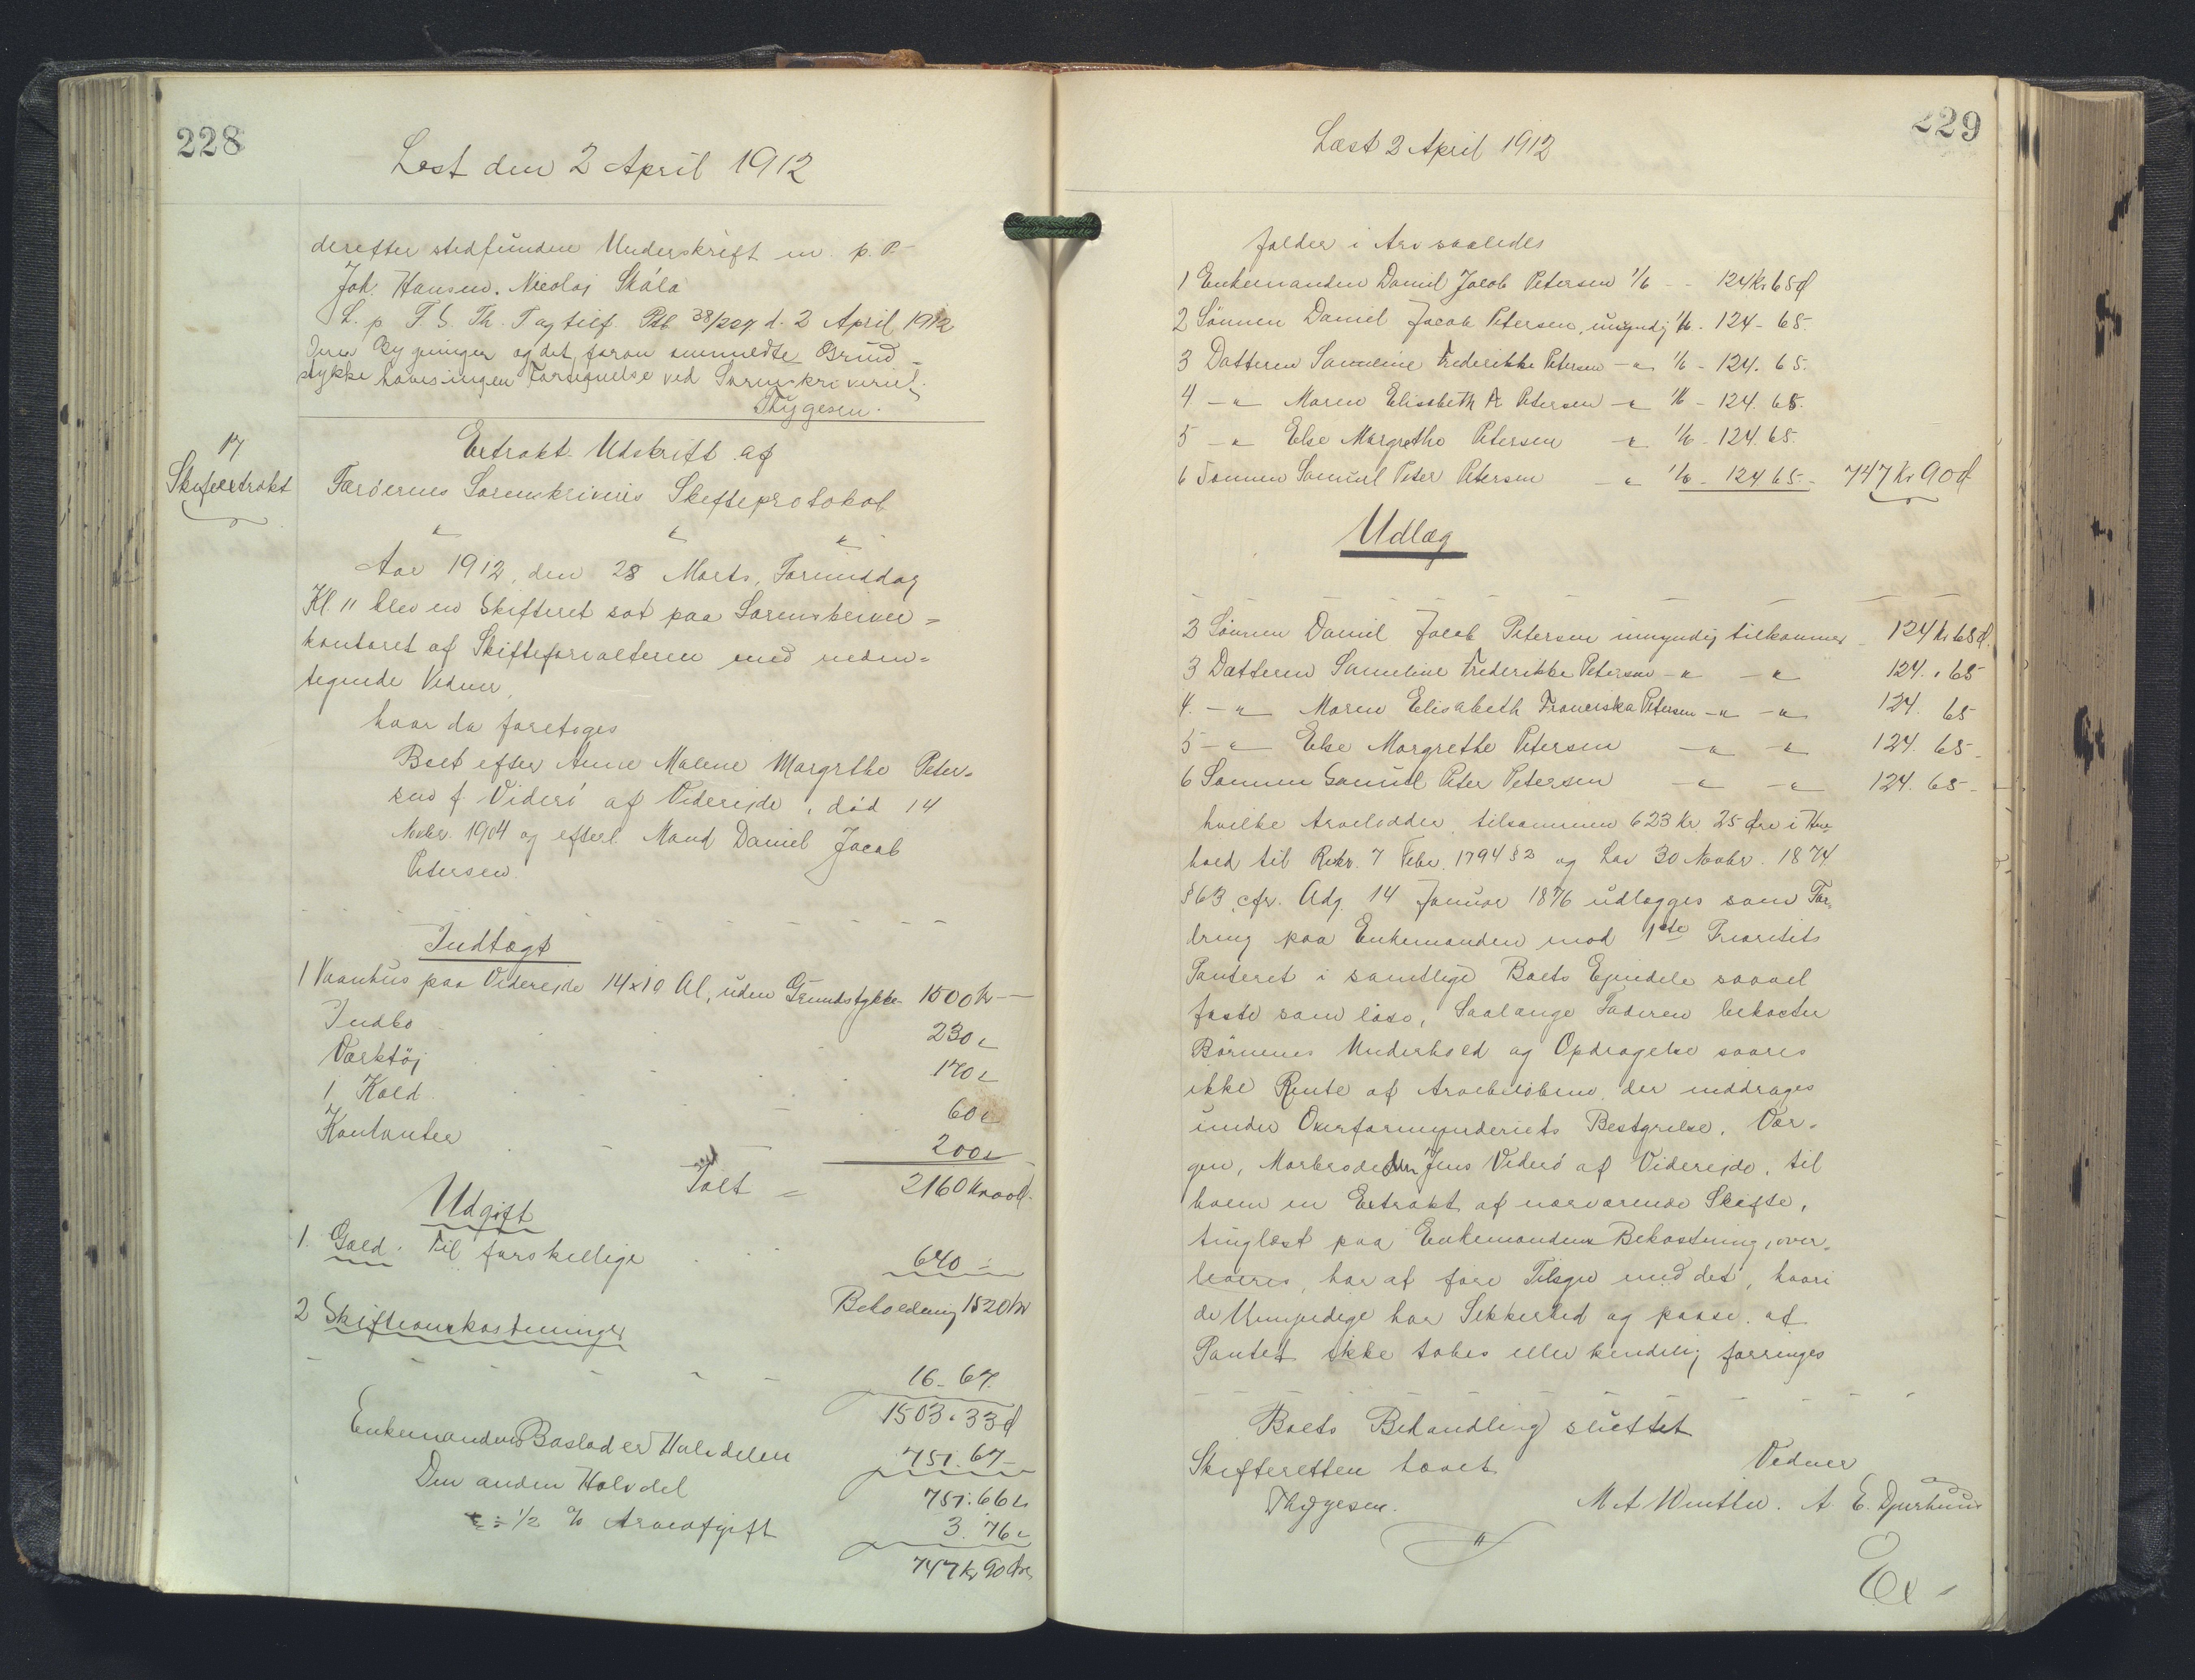 228
Læst den 2 April 1912
derefter stedfundne Underskrift m. p. P.
Joh. Hansen. Nicolaj Skála
L. p. F. S. Th. T og tilf. Ptb 38/227 d. 2 April 1912
Bygninger og det foran anmeldte Grund-
stykke haves ingen Forsegnelse ved Sorenskriveriet
Thygesen.
17
Skifteextrakt
Extrakt Udskrift af
Færöernes Sorenskriveris Skifteprotokol
Aar 1912, den 28 Marts, Formiddag
Kl. 11 blev en Skifteret sat paa Sorenskriver=
kontoret af Skifteforvalteren med neden=
tegnede Vidner,
hvor da foretoges
Boet efter Anne Malene Margrethe Peter=
sen f. Viderö af Viderejde, död 14
Novbr. 1904 og efterl. Mand Daniel Jacob
Petersen
Indtægt
1 Vaanhus paa Viderejde 14x10 Al, uden Grundstykke 1500 Kr —
Indbo 230 "
Værktöj 170 "
1 Kold 60 "
Kontanter 200 "
Ialt = 2160 Kr 00 Ø.
Udgift
1. Gæld. Til forskellige 640 -
Beholdning 1520 Kr
2 Skifteomkostninger
16. 67.
1503. 33 Ø
Enkemandens Boslod er Halvdelen 751. 67 -
Den anden Halvdel 751. 66 "
÷ 1/2 % Arveafgift 3. 76 "
747 Kr 90 Øre
229
Læst 2 April 1912
falder i Arv saaledes
1 Enkemanden Daniel Jacob Petersen 1/6 - - 124 Kr 65 Ø
2 Sönnen Daniel Jacob Petersen, umyndig 1/6 - 124 - 65.
3 Datteren Sameline Frederikke Petersen - " 1/6 - 124. 65.
4 - " Maren Elisabeth Fr Petersen - " 1/6 - 124. 65.
5 - " Else Margrethe Petersen - " 1/6 - 124. 65.
6 Sönnen Samuel Peter Petersen - " 1/6 - 124 65 - 747 Kr 90 Ø
Udlæg
2 Sönnen Daniel Jacob Petersen umyndig tilkommer - 124 Kr 65 Ø.
3 Datteren Sameline Frederikke Petersen - " - " 124. " 65
4. - " Maren Elisabeth Franciska Petersen - " - " 124. 65
5 - " Else Margrethe Petersen - " - " 124. 65 -
6 Sönnen Samuel Peter Petersen - " - " 124. 65 -
hvilke Arvelodder tilsammen 623 Kr. 25 Øre i Hen=
hold til Reskr. 7 Febr. 1794 § 2 og Lov 30 Novbr. 1874
§ 63, cfr. Adg. 14 Januar 1876 udlægges som For=
dring paa Enkemanden mod 1ste Prioritets
Panteret i samtlige Boets Ejendele saavel
faste som löse, Saalænge Faderen bekoster
Börnenes Underhold og Opdragelse svares
ikke Rente af Arvebelöbene, der inddrages
under Overformynderiets Bestyrelse. Vær=
gen, Morbroderen Jens Viderö af Viderejde, til
hvem en Extrakt af nærværende Skifte,
tinglæst paa Enkemandens Bekostning, over=
leveres, har at före Tilsyn med det, hvori
de Umyndige har Sikkerhed og paase, at
Pantet ikke tabes eller kendelig forringes
Boets Behandling sluttet
Skifteretten hævet Vidner
Thygesen. M A Winther. A. E. Djurhuus
Ex -